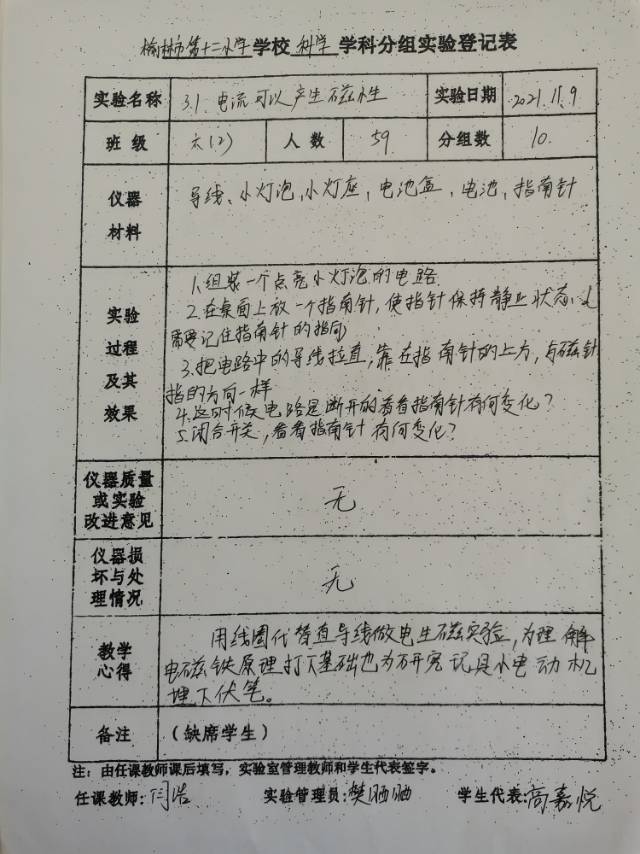 榆林市第十二小学学校 科学 学科分组实验登记表
实验名称 3.1.电流可以产生磁性 实验日期 2021.11.9
班级 六(2) 人数 59 分组数 10.
仪器材料 导线、小灯泡,小灯座,电池盒,电池,指南针
实验过程及其效果
1.组装一个点亮小灯泡的电路
2.在桌面上放一个指南针,使指针保持静止状态,
需要记住指南针的指向
3.把电路中的导线拉直,靠在指南针的上方,与磁针
指的方向一样
4.这时候电路是断开的看看指南针有何变化?
5.闭合开关,看看指南针有何变化?
仪器质量或实验改进意见 无
仪器损坏与处理情况 无
教学心得
用线圈代替直导线做电生磁实验,为理解
电磁铁原理打下基础也为研究玩具小电动机
埋下伏笔。
备注 (缺席学生)
注:由任课教师课后填写,实验室管理教师和学生代表签字。
任课教师:闫浩 实验管理员:樊 学生代表:高嘉悦